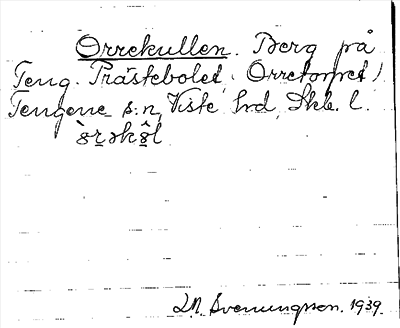 Orrekullen. Berg på
Teng. Prästebolet, Orretorpet,
Tengene s:n, Viste hd, Skb. l.
J.N. Svenningsson. 1939.